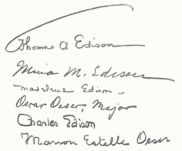 Thomas A Edison
Mina M. Edison
Madeleine Edison
Oscar Oeser, Major
Charles Edison
Marion Estelle Oeser